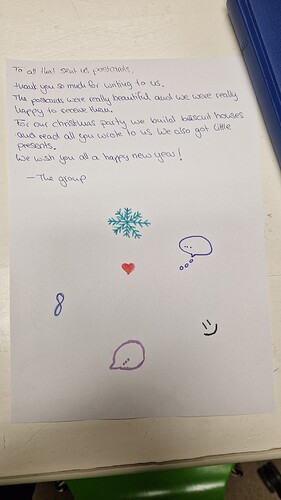 To all that sent us postcards,
thank you so much for writing to us.
The postcards were really beautiful and we were really
happy to recieve them.
For our christmas party we build biscuit houses
and read all you wrote to us. We also got little
presents.
We wish you all a happy new year!
– The group